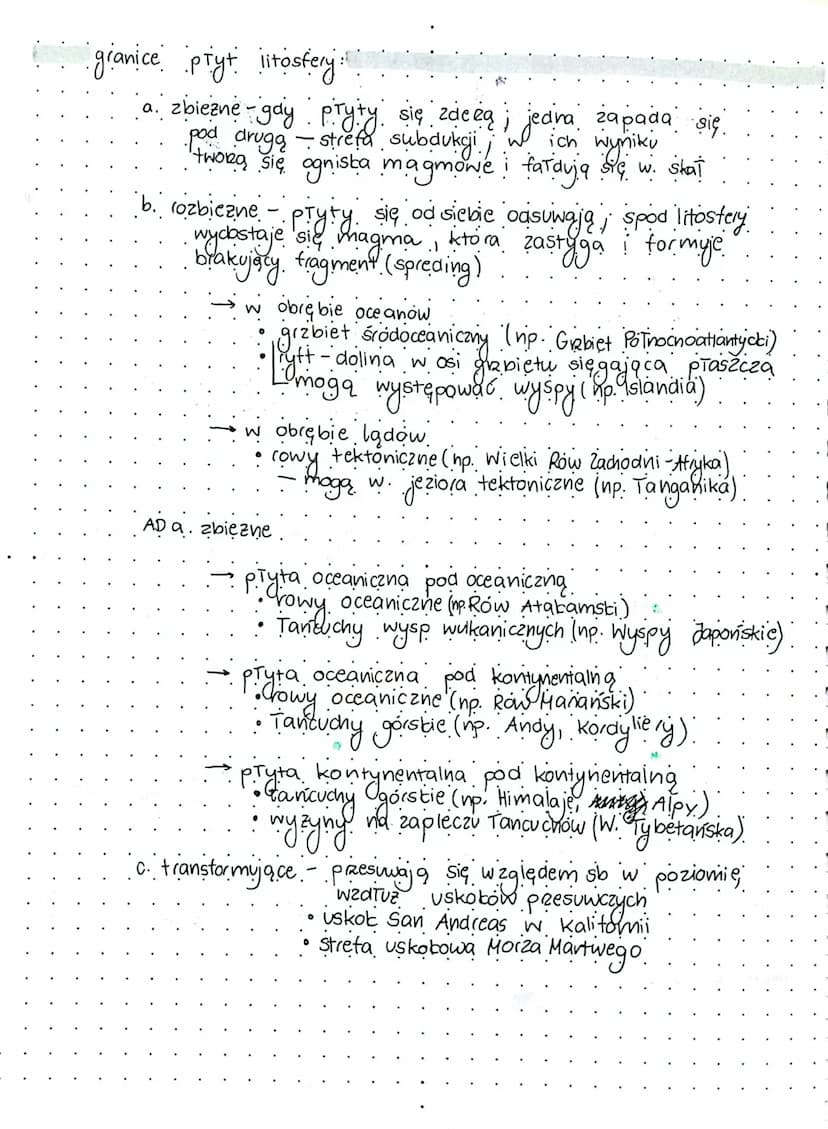 granice płyt litosfery:
a. zbieżne - gdy płyty się zderzą; jedna zapada się
pod drugą – strefa subdukcji; w ich wyniku
tworzą się ogniska magmowe i fałdują się w. skał
b. rozbieżne - płyty się od siebie odsuwają; spod litosfery
wydostaje się magma, która zastyga i formuje
brakujący fragment (spreding)
→ w obrębie oceanów
• grzbiet śródoceaniczny (np. Grzbiet Północnoatlantycki)
• ryft - dolina w osi grzbietu sięgająca płaszcza
mogą występować wyspy (np. Islandia)
→ w obrębie lądów
• rowy tektoniczne (np. Wielki Rów Zachodni - Afryka)
– mogą w. jeziora tektoniczne (np. Tanganika)
AD a. zbieżne
→ płyta oceaniczna pod oceaniczną
• rowy oceaniczne (np Rów Atakamski)
• Łańcuchy wysp wulkanicznych (np. Wyspy Japońskie)
→ płyta oceaniczna pod kontynentalną
• rowy oceaniczne (np. Rów Mariański)
• Łańcuchy górskie (np. Andy, Kordyliery)
→ płyta kontynentalna pod kontynentalną
• łańcuchy górskie (np. Himalaje, Alpy)
• wyżyny na zapleczu łańcuchów (W. Tybetańska)
c. transformujące - przesuwają się względem sb w poziomie
wzdłuż uskoków przesuwczych
• uskok San Andreas w Kalifornii
• strefa uskokowa Morza Martwego